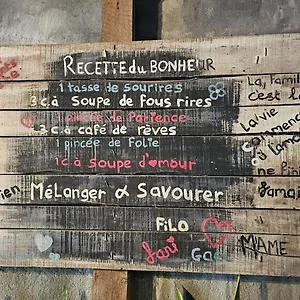 RECETTE du BONHEUR
1 tasse de sourires
3 c.à Soupe de fous rires
1 pincée de Patience
3 c.à café de rêves
1 pincée de folie
1 c.à soupe d'amour
Mélanger & Savourer
FiLO
MAME
La famil
c'est l
La vie
commence
ne fi
Jamai